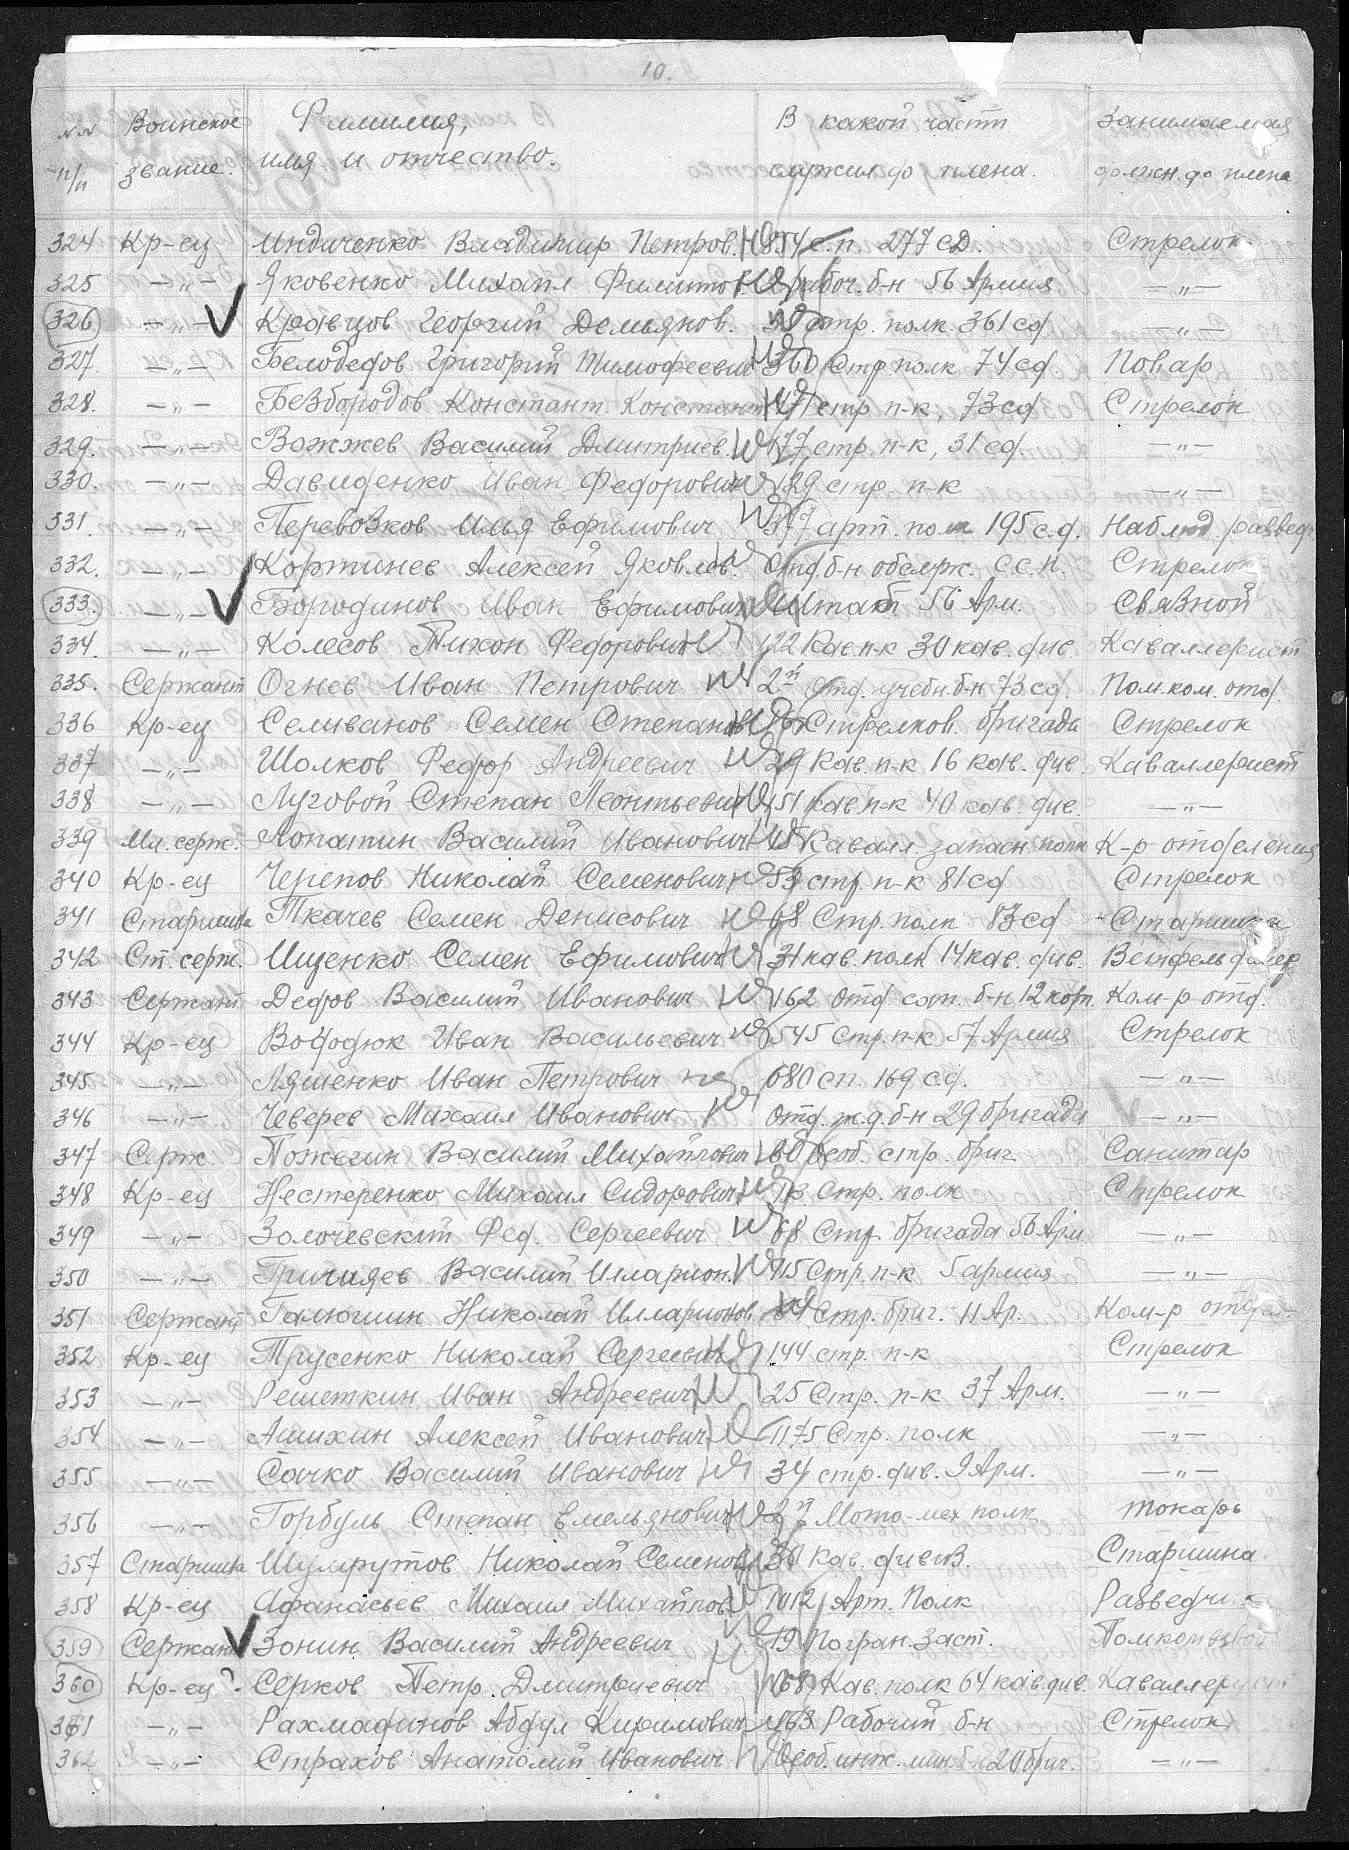 10.
№№ Воинское Фамилия, В какой части Занимаемая
п/п звание. имя и отчество. служил до плена. должн. до плена
324 Кр-ец Индиченко Владимир Петров. 854 с.п. 277 сд. Стрелок.
325 —„— Яковенко Михаил рабоч. б-н 56 Армия —„—
326 —„— Кравцов Георгий Демьянов. стр. полк 361 сд —„—
327. —„— Белодедов Григорий Тимофеевич 360 Стр полк 74 сд Повар
328. —„— Безбородов Констант. Констант 471 стр п-к, 73 сд Стрелок
329. —„— Вожжев Василий Дмитриев. 177 стр. п-к, 31 сд. —„—
330. —„— Давиденко Иван Федорович 129 стр. п-к —„—
331. —„— Перевозков Илья Ефимович арт. полк 195 с.д. Наблюд. развед.
332. —„— Кортинев Алексей Яковлев. Отд. б-н обслуж. с.с.п. Стрелок
333. —„— Бородинов Иван Ефимович Штаб 56 Арм. Связной
334. —„— Колесов Тихон Федорович 122 Кав. п-к 30 кав. див. Каваллерист
335. Сержант Огнев Иван Петрович 2й отд. учебн. б-н 73 сд. Пом. ком. отд.
336 Кр-ец Селиванов Семен Степанов Стрелков. бригада Стрелок
337 —„— Шолков Федор Андреевич 29 Кав. п-к 16 кав. див. Каваллерист
338 —„— Луговой Степан Леонтьевич 151 кав. п-к 40 кав. див. —„—
339 Мл. серж. Лопатин Василий Иванович Кавалл. запасн. полк К-р отделения
340 Кр-ец Черепов Николай Семенович 59 стр п-к 81 сд Стрелок
341 Старшина Ткачев Семен Денисович 68 Стр. полк сд Старшина
342 Ст. серж. Ищенко Семен Ефимович 31 кав. полк 14 кав. див. Ветфельдшер
343 Сержант Дедов Василий Иванович 162 отд. сап. б-н 12 корп. Ком-р отд.
344 Кр-ец Вододюк Иван Васильевич 545 Стр. п-к 57 Армия Стрелок
345 —„— Ляшенко Иван Петрович 680 сп. 169 с.д. —„—
346 —„— Чеверев Михаил Иванович Отд. ж.д. б-н 29 бригада —„—
347 Серж. Пожегин Василий Михайлович Особ. стр. бриг Санитар
348 Кр-ец Нестеренко Михаил Сидорович Стр. полк Стрелок
349 —„— Золочевский Фед. Сергеевич 68 Стр. бригада 56 Арм —„—
350 —„— Василий Илларион. 115 Стр. п-к армия —„—
351 Сержант Галюшин Николай Илларионов Стр. бриг. 11 Ар. Ком-р отдел.
352 Кр-ец Трусенко Николай Сергеевич 144 стр. п-к Стрелок
353 —„— Решеткин Иван Андреевич 25 Стр. п-к 37 Арм. —„—
354 —„— Ашихин Алексей Иванович 1175 Стр. полк —„—
355 —„— Сачко Василий Иванович 34 стр. див. 9 Арм. —„—
356 —„— Горбуль Степан Емельянович 2й Мото-мех полк Токарь
357 Старшина Шумрутов Николай Семенов 30 Кав. дивиз. Старшина.
358 Кр-ец Афанасьев Михаил Михайлов. 1012 Арт. Полк Разведчик
359 Сержант Зонин Василий Андреевич 19 Погран. Заст. Помкомвзвод
360 Кр-ец Серков Петр Дмитриевич 168 Кав. полк 64 кав. див. Каваллерист
361 —„— Рахмадинов Абдул Киримович 163 Рабочий б-н Стрелок
362 —„— Страхов Анатолий Иванович Особ. инж. мин. б-н 20 бриг. —„—